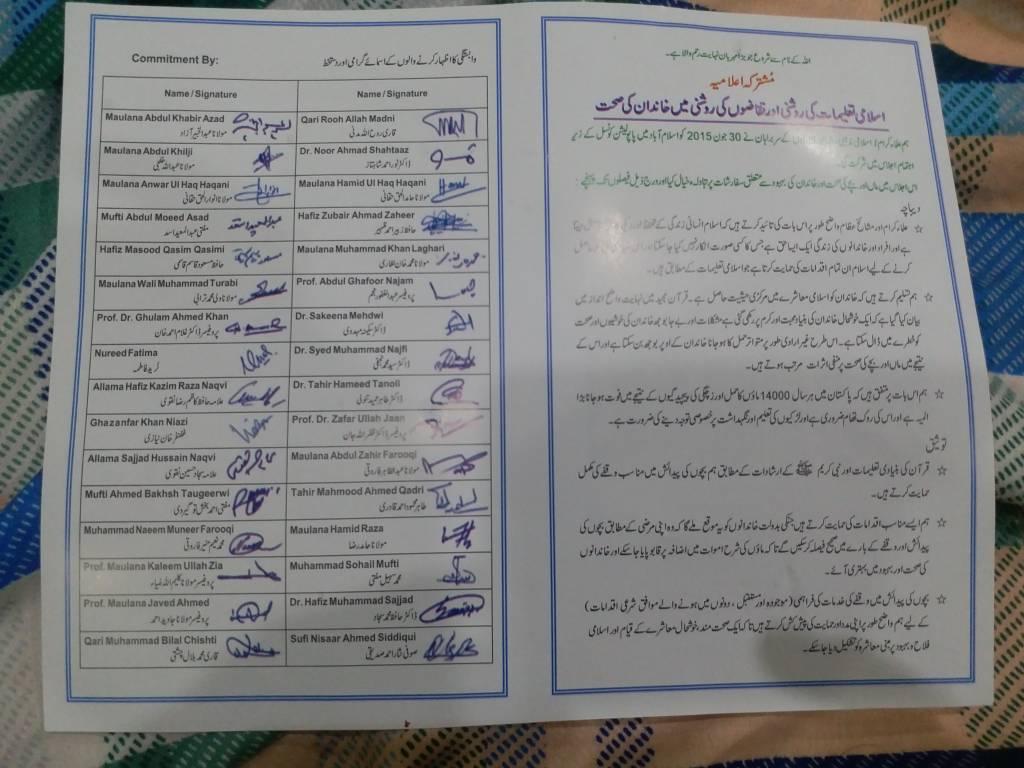 Commitment By:
وابستگی کا اظہار کرنے والوں کے اسمائے گرامی اور دستخط
Name / Signature
Name / Signature
Maulana Abdul Khabir Azad
مولانا عبدالخبیر آزاد
Qari Rooh Allah Madni
قاری روح اللہ مدنی
Maulana Abdul Khilji
مولانا عبداللہ خلجی
Dr. Noor Ahmad Shahtaaz
ڈاکٹر نور احمد شاہتاز
Maulana Anwar Ul Haq Haqani
مولانا انوار الحق حقانی
Maulana Hamid Ul Haq Haqani
مولانا حامد الحق حقانی
Mufti Abdul Moeed Asad
مفتی عبدالمعید اسد
Hafiz Zubair Ahmad Zaheer
حافظ زبیر احمد ظہیر
Hafiz Masood Qasim Qasimi
حافظ مسعود قاسم قاسمی
Maulana Muhammad Khan Laghari
مولانا محمد خان لغاری
Maulana Wali Muhammad Turabi
مولانا ولی محمد ترابی
Prof. Abdul Ghafoor Najam
پروفیسر عبدالغفور نجم
Prof. Dr. Ghulam Ahmed Khan
پروفیسر ڈاکٹر غلام احمد خان
Dr. Sakeena Mehdwi
ڈاکٹر سکینہ مہدوی
Nureed Fatima
فاطمہ
Dr. Syed Muhammad Najfi
ڈاکٹر سید محمد نجفی
Allama Hafiz Kazim Raza Naqvi
علامہ حافظ کاظم رضا نقوی
Dr. Tahir Hameed Tanoli
ڈاکٹر طاہر حمید تنولی
Ghazanfar Khan Niazi
غضنفر خان نیازی
Prof. Dr. Zafar Ullah Jaan
پروفیسر ڈاکٹر ظفر اللہ جان
Allama Sajjad Hussain Naqvi
علامہ سجاد حسین نقوی
Maulana Abdul Zahir Farooqi
مولانا عبدالظاہر فاروقی
Mufti Ahmed Bakhsh Taugeerwi
مفتی احمد بخش
Tahir Mahmood Ahmed Qadri
طاہر محمود احمد قادری
Muhammad Naeem Muneer Farooqi
محمد نعیم منیر فاروقی
Maulana Hamid Raza
مولانا حامد رضا
Prof. Maulana Kaleem Ullah Zia
پروفیسر مولانا کلیم اللہ ضیاء
Muhammad Sohail Mufti
محمد سہیل مفتی
Prof. Maulana Javed Ahmed
پروفیسر مولانا جاوید احمد
Dr. Hafiz Muhammad Sajjad
ڈاکٹر حافظ محمد سجاد
Qari Muhammad Bilal Chishti
قاری محمد بلال چشتی
Sufi Nisaar Ahmed Siddiqui
صوفی نثار احمد صدیقی
اللہ کے نام سے شروع جو بڑا مہربان نہایت رحم والا ہے۔
مُشترکہ اعلامیہ
اسلامی تعلیمات کی روشنی اور تقاضوں کی روشنی میں خاندان کی صحت
ہم علماء کرام / اسلامی کے سربراہان نے 30 جون 2015 کو اسلام آباد میں پاپولیشن کونسل کے زیر
اہتمام اجلاس میں شرکت کی۔
اس اجلاس میں ماں اور بچے کی صحت اور خاندان کی بہبود سے متعلق سفارشات پر تبادلہ خیال کیا اور درج ذیل فیصلوں تک پہنچے:
دیباچہ
☆ علماء کرام اور مشائخ عظام واضح طور پر اس بات کی تائید کرتے ہیں کہ اسلام انسانی زندگی کے تحفظ اور
ہے اور افراد اور خاندانوں کی زندگی ایک ایسا حق ہے جس کا کسی صورت انکار نہیں کیا جا سکتا اور اس
کرنے کے لیے اسلام ان تمام اقدامات کی حمایت کرتا ہے جو اسلامی تعلیمات کے مطابق ہیں۔
☆ ہم تسلیم کرتے ہیں کہ خاندان کو اسلامی معاشرے میں مرکزی حیثیت حاصل ہے۔ قرآن مجید میں نہایت واضح انداز میں
بیان کیا گیا ہے کہ ایک خوشحال خاندان کی بنیاد محبت اور کرم پر رکھی گئی ہے مشکلات اور بے جا بوجھ خاندان کی خوشیوں اور صحت
کو خطرے میں ڈال سکتا ہے۔ اس طرح غیر ارادی طور پر متواتر حمل کا ہو جانا خاندان کے اوپر بوجھ بن سکتا ہے اور اس کے
نتیجے میں ماں اور بچے کی صحت پر منفی اثرات مرتب ہوتے ہیں۔
☆ ہم اس بات پر متفق ہیں کہ پاکستان میں ہر سال 14000 ماؤں کا حمل اور زچگی کی پیچیدگیوں کے نتیجے میں فوت ہو جانا بڑا
المیہ ہے اور اس کی روک تھام ضروری ہے اور لڑکیوں کی تعلیم اور نگہداشت پر خصوصی توجہ دینے کی ضرورت ہے۔
توثیق
☆ قرآن کی بنیادی تعلیمات اور نبی کریم ﷺ کے ارشادات کے مطابق ہم بچوں کی پیدائش میں مناسب وقفے کی مکمل
حمایت کرتے ہیں۔
☆ ہم ایسے مناسب اقدامات کی حمایت کرتے ہیں جنکی بدولت خاندانوں کو یہ موقع ملے گا کہ وہ اپنی مرضی کے مطابق بچوں کی
پیدائش اور وقفے کے بارے میں صحیح فیصلہ کر سکیں گے تاکہ ماؤں کی شرح اموات میں اضافہ پر قابو پایا جا سکے اور خاندانوں
کی صحت اور بہبود میں بہتری آئے۔
☆ بچوں کی پیدائش میں وقفے کی خدمات کی فراہمی (موجودہ اور مستقبل، دونوں میں ہونے والے موافق شرعی اقدامات)
کے لیے ہم واضح طور پر اپنی مدد اور حمایت کی پیش کش کرتے ہیں تاکہ ایک صحت مند، خوشحال معاشرے کے قیام اور اسلامی
فلاح و بہبود پر مبنی معاشرہ کو تشکیل دیا جا سکے۔